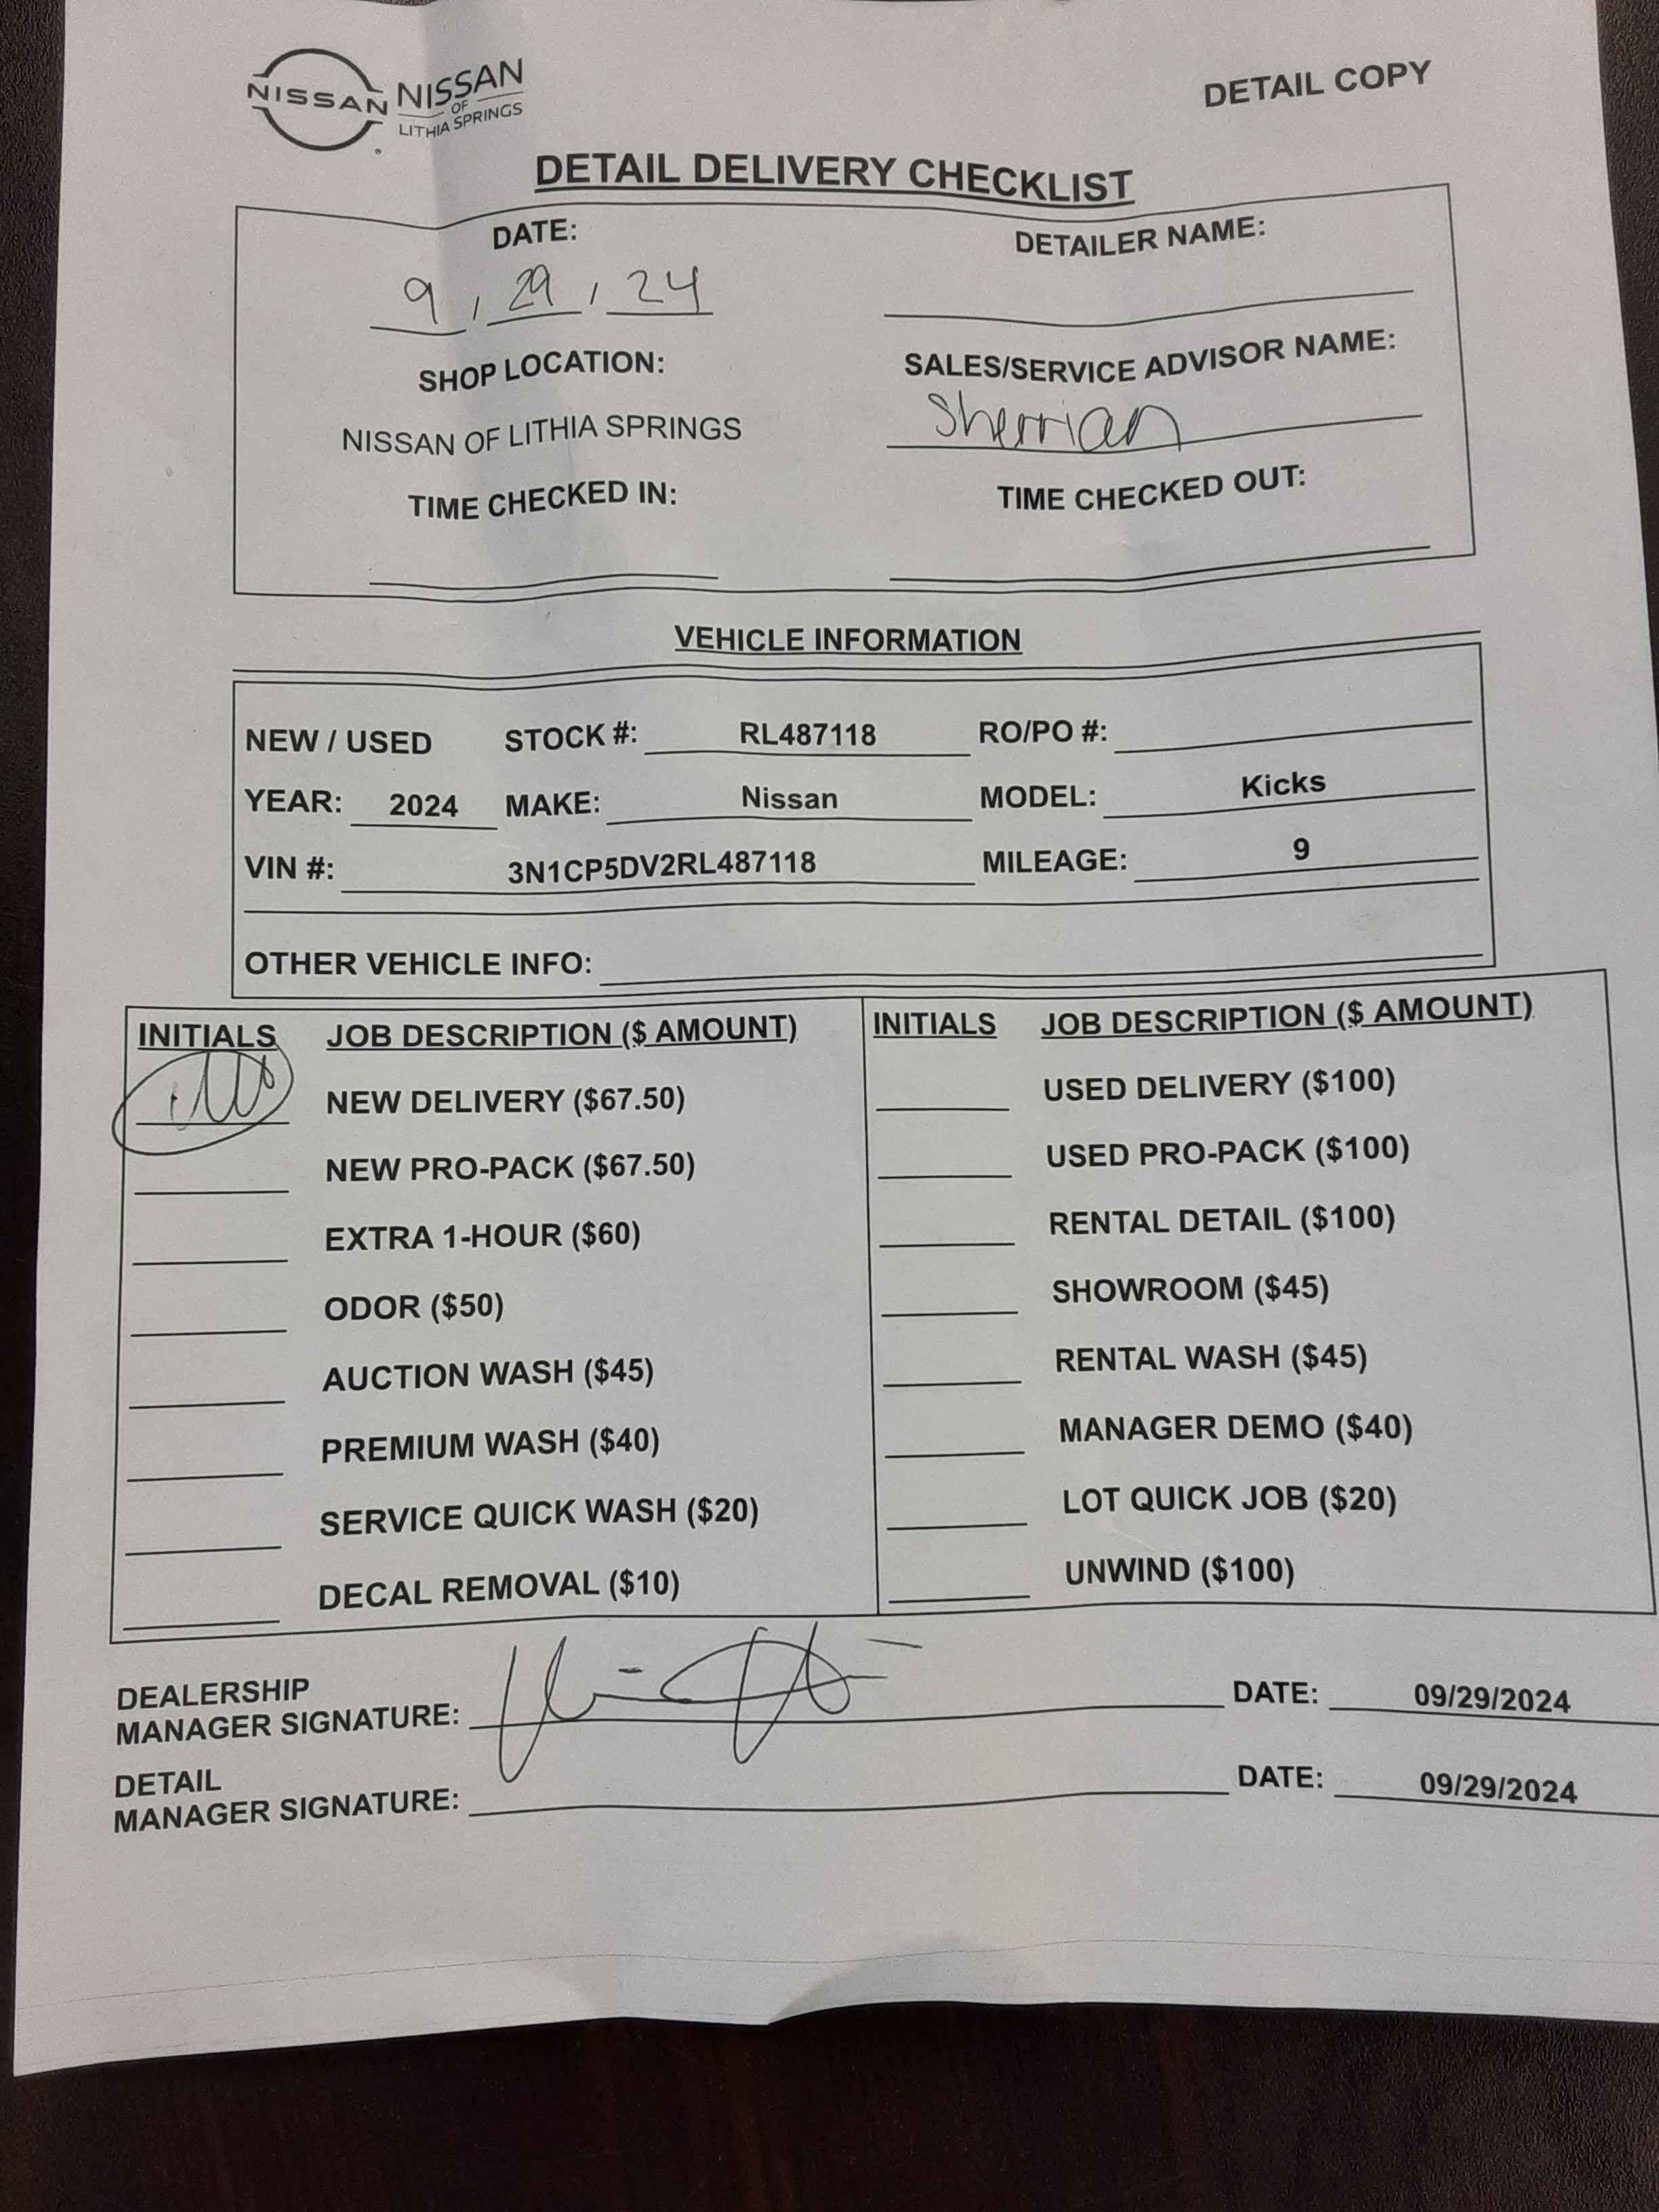 DETAIL COPY
NISSAN NISSAN
OF
LITHIA SPRINGS
DETAIL DELIVERY CHECKLIST
DATE: DETAILER NAME:
9 / 29 / 24
SHOP LOCATION: SALES/SERVICE ADVISOR NAME:
NISSAN OF LITHIA SPRINGS Sherrian
TIME CHECKED IN: TIME CHECKED OUT:
VEHICLE INFORMATION
NEW / USED STOCK #: RL487118 RO/PO #:
YEAR: 2024 MAKE: Nissan MODEL: Kicks
VIN #: 3N1CP5DV2RL487118 MILEAGE: 9
OTHER VEHICLE INFO:
INITIALS JOB DESCRIPTION ($ AMOUNT) INITIALS JOB DESCRIPTION ($ AMOUNT)
NEW DELIVERY ($67.50) USED DELIVERY ($100)
NEW PRO-PACK ($67.50) USED PRO-PACK ($100)
EXTRA 1-HOUR ($60) RENTAL DETAIL ($100)
ODOR ($50) SHOWROOM ($45)
AUCTION WASH ($45) RENTAL WASH ($45)
PREMIUM WASH ($40) MANAGER DEMO ($40)
SERVICE QUICK WASH ($20) LOT QUICK JOB ($20)
DECAL REMOVAL ($10) UNWIND ($100)
DEALERSHIP
MANAGER SIGNATURE: DATE: 09/29/2024
DETAIL
MANAGER SIGNATURE: DATE: 09/29/2024